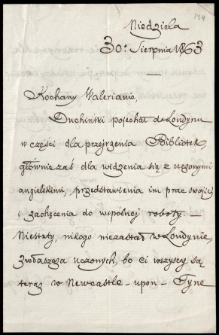 Niedziela
30º Sierpnia 1863
Kochany Walerianie,
Duchiński pojechał do Londynu
w części dla przejrzenia Bibliotek
głównie zaś dla widzenia się z uczonymi
angielskimi, przedstawienia im prac swoich
i zachęcenia do wspólnej roboty —
Niestety, nikogo niezastał w Londynie,
zwłaszcza uczonych, bo ci wszyscy są
teraz w Newcastle - upon - Tyne